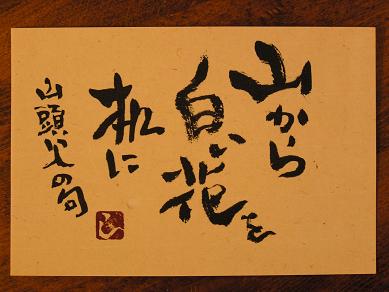 山から
白い花を
机に
山頭火の句